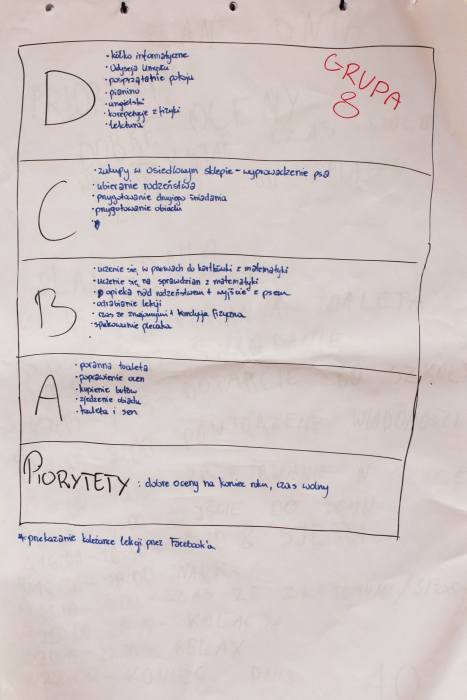 GRUPA
8
D
• kółko informatyczne
• Odyseja Umysłu
• posprzątanie pokoju
• pianino
• angielski
• korepetycje z fizyki
• lektura
C
• zakupy w osiedlowym sklepie - wyprowadzenie psa
• ubieranie rodzeństwa
• przygotowanie drugiego śniadania
• przygotowanie obiadu
B
• uczenie się w przerwach do kartkówki z matematyki
• uczenie się na sprawdzian z matematyki
• opieka nad rodzeństwem + wyjście z psem
• odrabianie lekcji
• czas ze znajomymi + kondycja fizyczna
• spakowanie plecaka
A
• poranna toaleta
• poprawienie ocen
• kupienie butów
• zjedzenie obiadu
• toaleta i sen
PIORYTETY : dobre oceny na koniec roku, czas wolny
* przekazanie koleżance lekcji przez Facebook'a